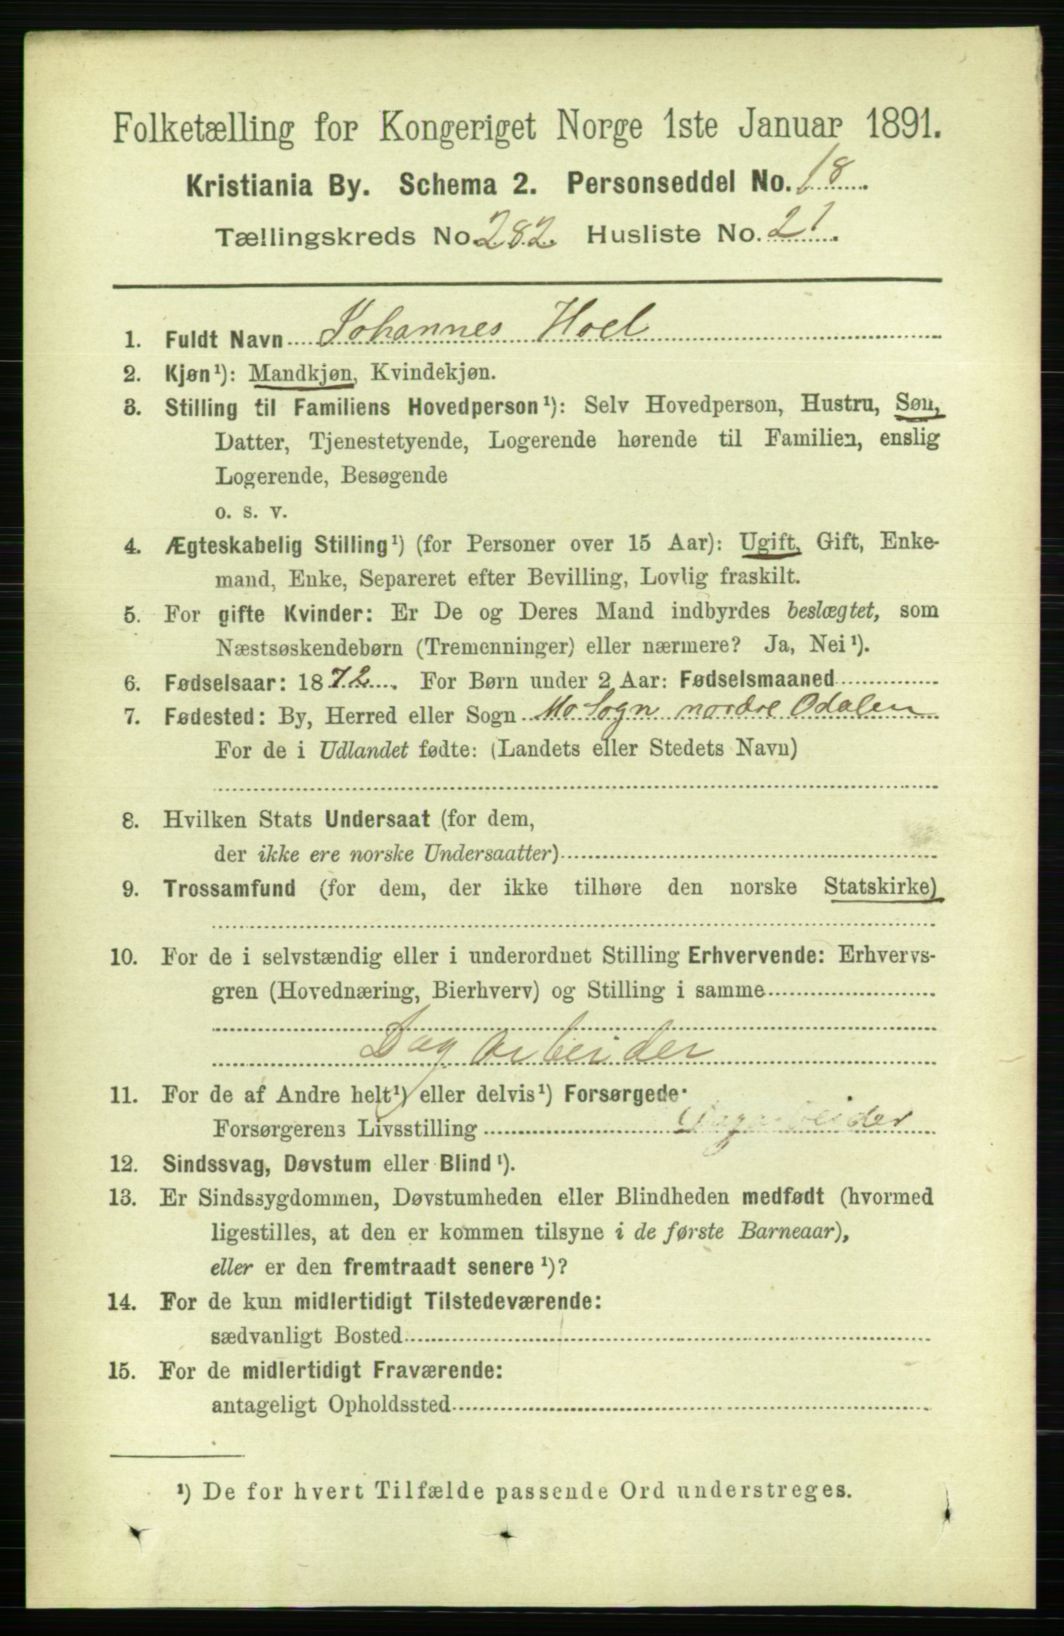 Folketælling for Kongeriget Norge 1ste Januar 1891.
Kristiania By. Schema 2. Personseddel No. 18.
Tællingskreds No. 282 Husliste No. 21.
1. Fuldt Navn Johannes Hoel
2. Kjøn¹): Mandkjøn, Kvindekjøn.
3. Stilling til Familiens Hovedperson¹): Selv Hovedperson, Hustru, Søn,
Datter, Tjenestetyende, Logerende hørende til Familien, enslig
Logerende, Besøgende
o. s. v.
4. Ægteskabelig Stilling¹) (for Personer over 15 Aar): Ugift, Gift, Enke-
mand, Enke, Separeret efter Bevilling, Lovlig fraskilt.
5. For gifte Kvinder: Er De og Deres Mand indbyrdes beslægtet, som
Næstsøskendebørn (Tremenninger) eller nærmere? Ja, Nei¹).
6. Fødselsaar: 1872. For Børn under 2 Aar: Fødselsmaaned
7. Fødested: By, Herred eller Sogn Mo Sogn nordre Odalen
For de i Udlandet fødte: (Landets eller Stedets Navn)
8. Hvilken Stats Undersaat (for dem,
der ikke ere norske Undersaatter)
9. Trossamfund (for dem, der ikke tilhøre den norske Statskirke)
10. For de i selvstændig eller i underordnet Stilling Erhvervende: Erhvervs-
gren (Hovednæring, Bierhverv) og Stilling i samme
Dagarbeider
11. For de af Andre helt¹) eller delvis¹) Forsørgede:
Forsørgerens Livsstilling Dagarbeider
12. Sindssvag, Døvstum eller Blind¹).
13. Er Sindssygdommen, Døvstumheden eller Blindheden medfødt (hvormed
ligestilles, at den er kommen tilsyne i de første Barneaar),
eller er den fremtraadt senere¹)?
14. For de kun midlertidigt Tilstedeværende:
sædvanligt Bosted
15. For de midlertidigt Fraværende:
antageligt Opholdssted
¹) De for hvert Tilfælde passende Ord understreges.